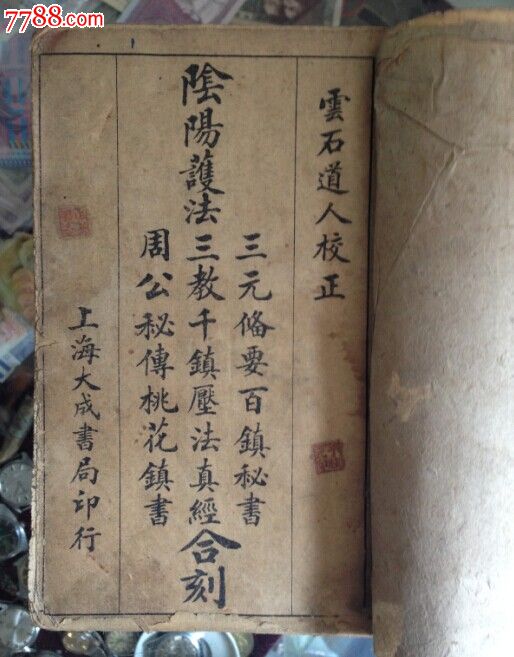 7788.com
雲石道人校正
陰陽護法
三元偹要百鎮秘書
三教千鎮壓法真經
周公秘傳桃花鎮書
合刻
上海大成書局印行